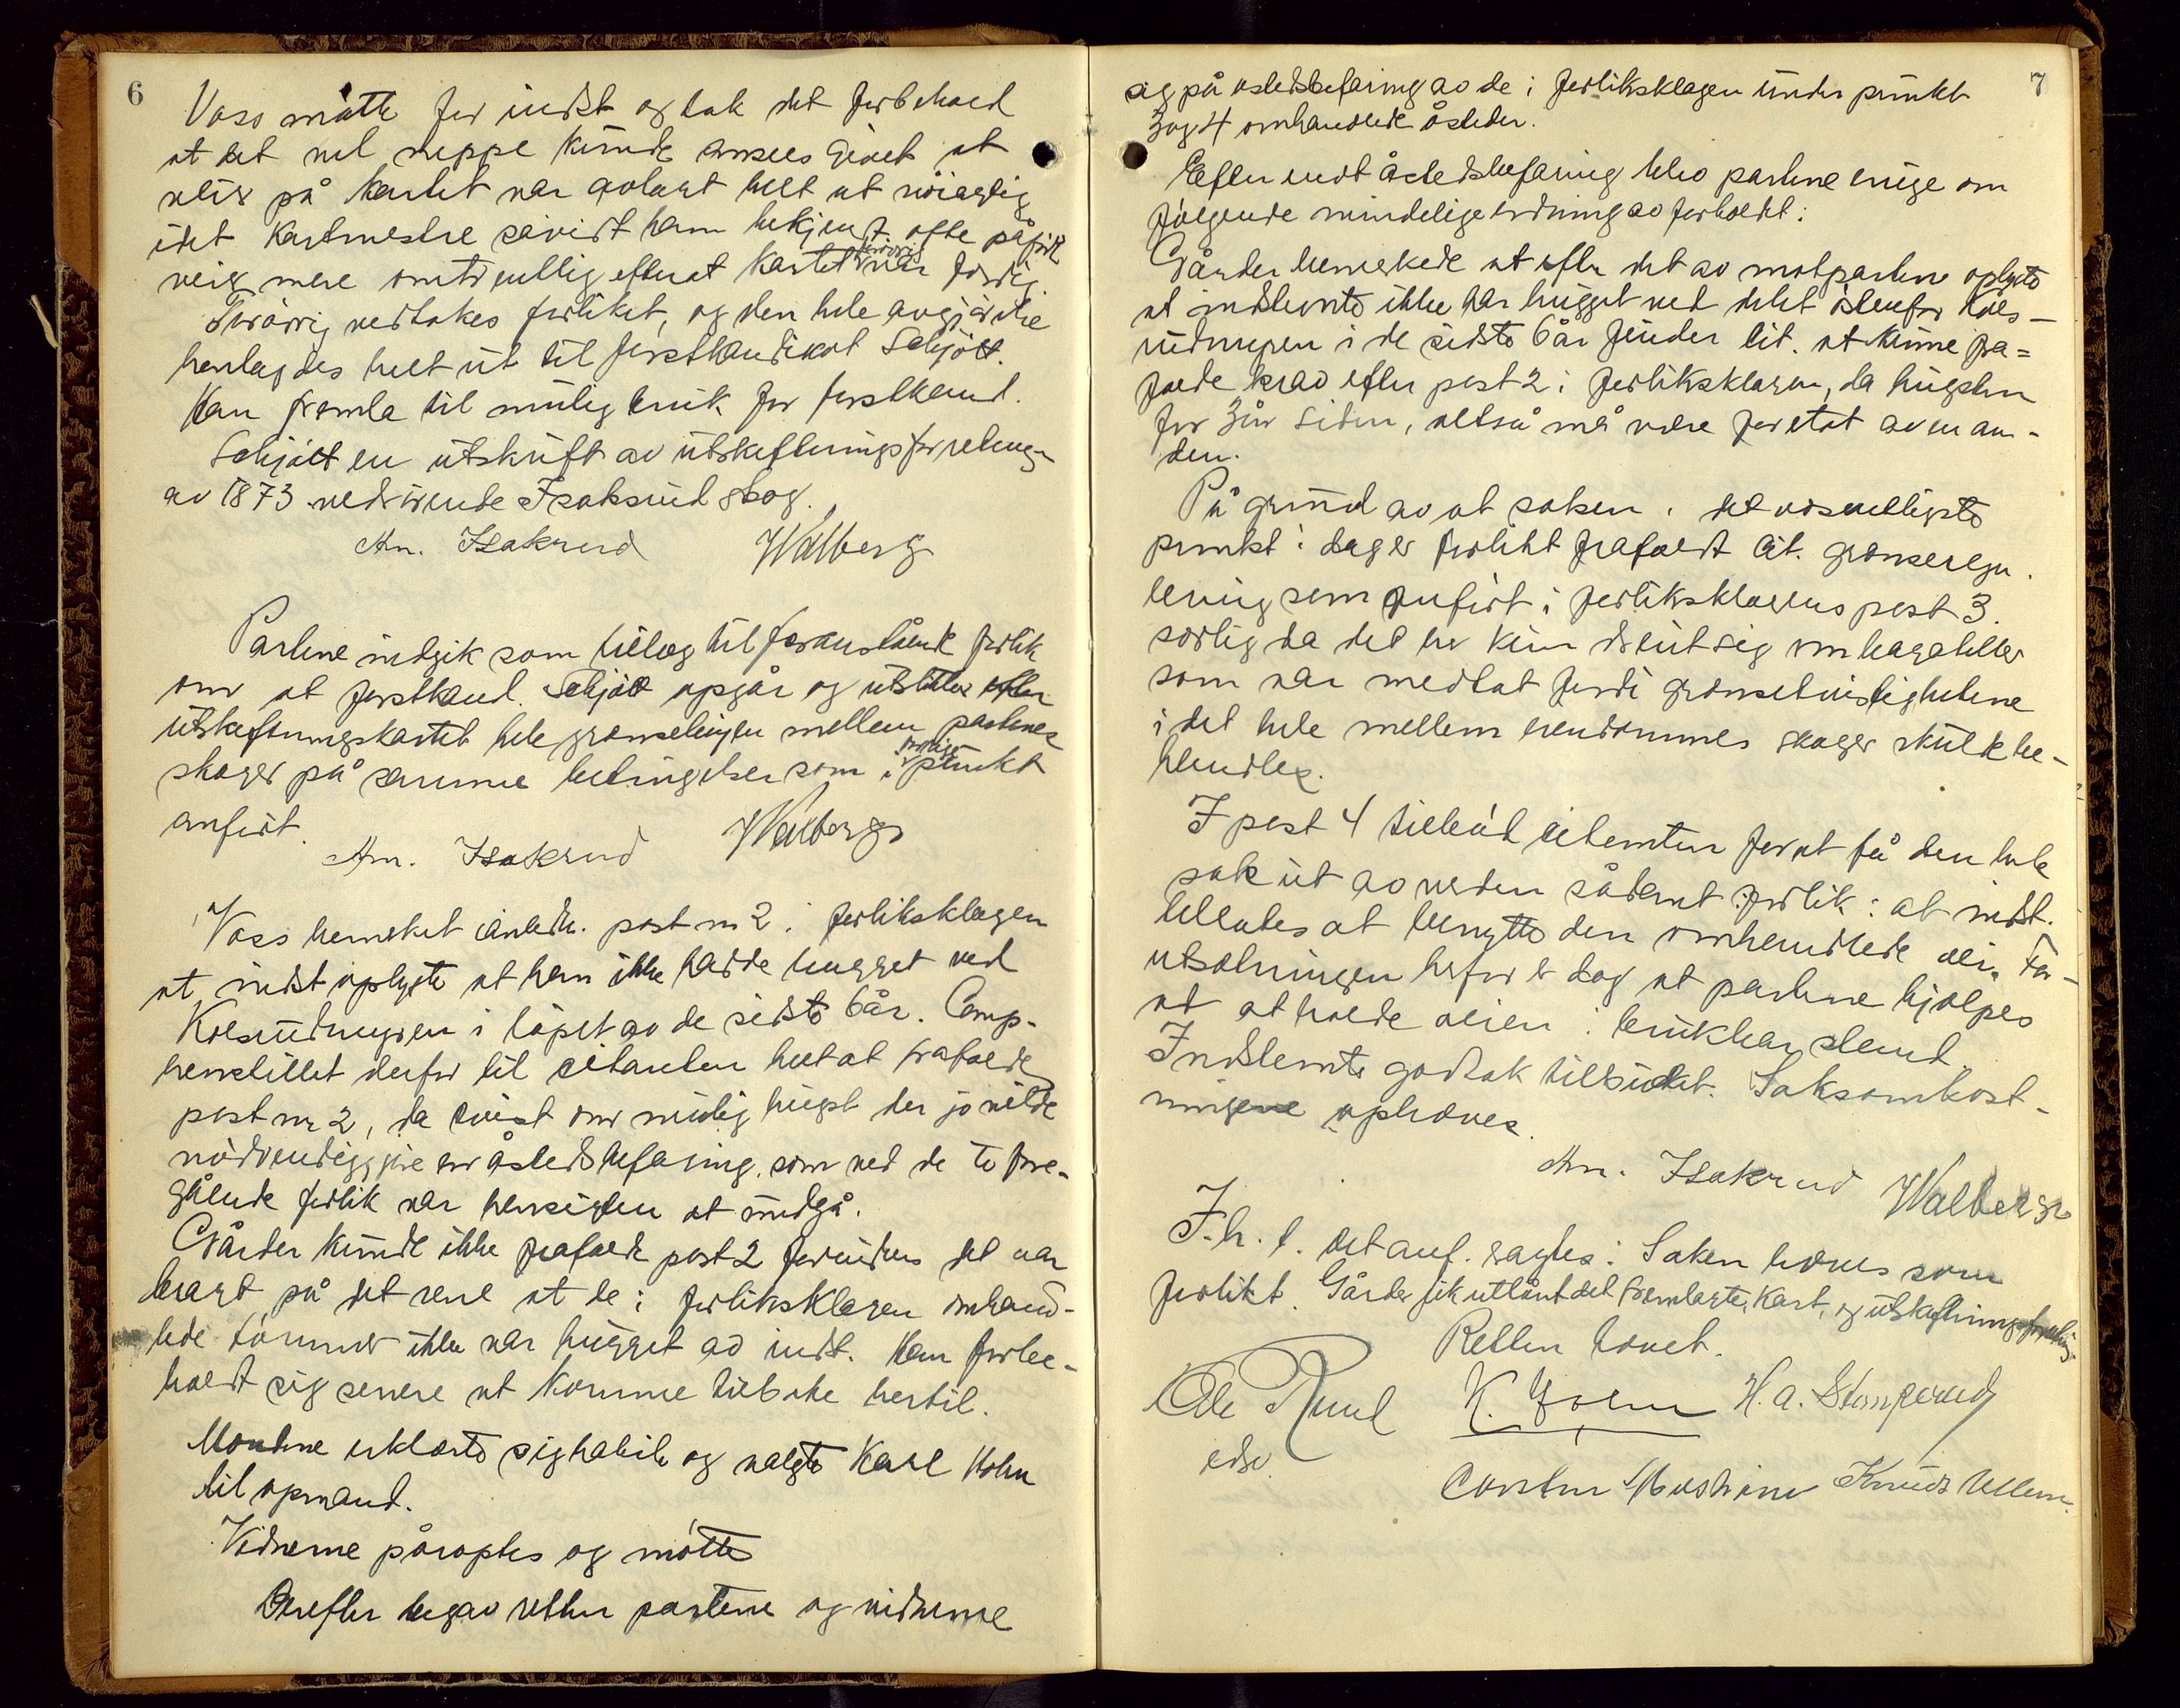 6
Voss møtte for indst og tok det forbehold
at det vel neppe kunde ansees givet at
veier på kartet var avlagt helt ut nöiagtig
idet kartmestre såvidt ham bekjent ofte påfört
veier mere omtrentlig efterat kartet forövrig var færdig.
Forövrig vedtokes forliket, og den hele avgjörelse
henlagdes helt ut til forstkandidat Schjött.
Han fremla til mulig bruk for forstkand.
Schjött en utskrift av utskiftningsforretning
av 1873 vedrörende Isaksrud skog.
An. Isakrud Walberg
Partene indgik som tillæg til foranstående forlik
om at forstkand. Schjött opgår og utstikker efter
utskiftningskartet hele grænselinjen mellem partenes
skoger på samme betingelser som i forrige punkt
anfört.
An. Isakrud Walberg
Voss bemerket anledn. post nr 2 i forliksklagen
at indst oplyste at han ikke hadde hugget ved
Kolsrudmyren i löpet av de sidste 6 år. Comp.
henstillet derfor til citanten helt at frafalde
post nr 2, da tvist om mulig hugst der jo vilde
nödvendiggjöre en åstedsbefaring, som ved de to fore-
gående forlik var hensigten at undgå.
Gårder kunde ikke frafalde post 2 forinden det var
bragt på det rene at de i forliksklagen omhand-
lede tömmer ikke var hugget av indst. Han forbe-
holdt sig senere at komme tilbake hertil.
Mændene erklærte sig habile og valgte Karl Holm
til opmand.
Vidnerne påroptes og mötte
Derefter begav retten partene og vidnerne
7
sig på åstedsbefaring av de i forliksklagen under punkt
3 og 4 omhandlede åsteder.
Efter endt åstedsbefaring blev partene enige om
fölgende mindelige ordning av forholdet:
Gårder bemerkede at efter det av motparten oplyste
at indstevnte ikke har hugget ved delet östenfor Kols-
rudmyren i de sidste 6 år finder cit. at kunne fra=
falde krav efter post 2 i forliksklagen, da hugsten
for 3 år siden, altså må være foretat av en an-
den.
På grund av at saken i det væsentligste
punkt i dag er forlikt frafaldt cit. grænseregu-
lering som anfört i forliksklagens post 3.
særlig da det her kun dreiet sig om bagateller
som var medtat fordi grænsetvistighetene
i det hele mellem eiendommenes skoger skulde be-
handles.
I post 4 tilböd citanten for at få den hele
sak ut av verden sådant forlik: at indst.
tillates at benytte den omhandlede vei. For-
utsætningen herfor er dog at partene hjælpes
at at holde veien i brukbar stand.
Indstevnte godtok tilbudet. Saksomkost-
ningene ophæves.
An. Isakrud Walberg
F. h. t. det anf. sagdes: Saken hæves som
forlikt. Gårder fik utlånt det fremlagte kart, og utskiftningsforretning.
Retten hævet.
Ole Ruud K. Holm H. A. Stamperud
edsv.
Knud Ullern